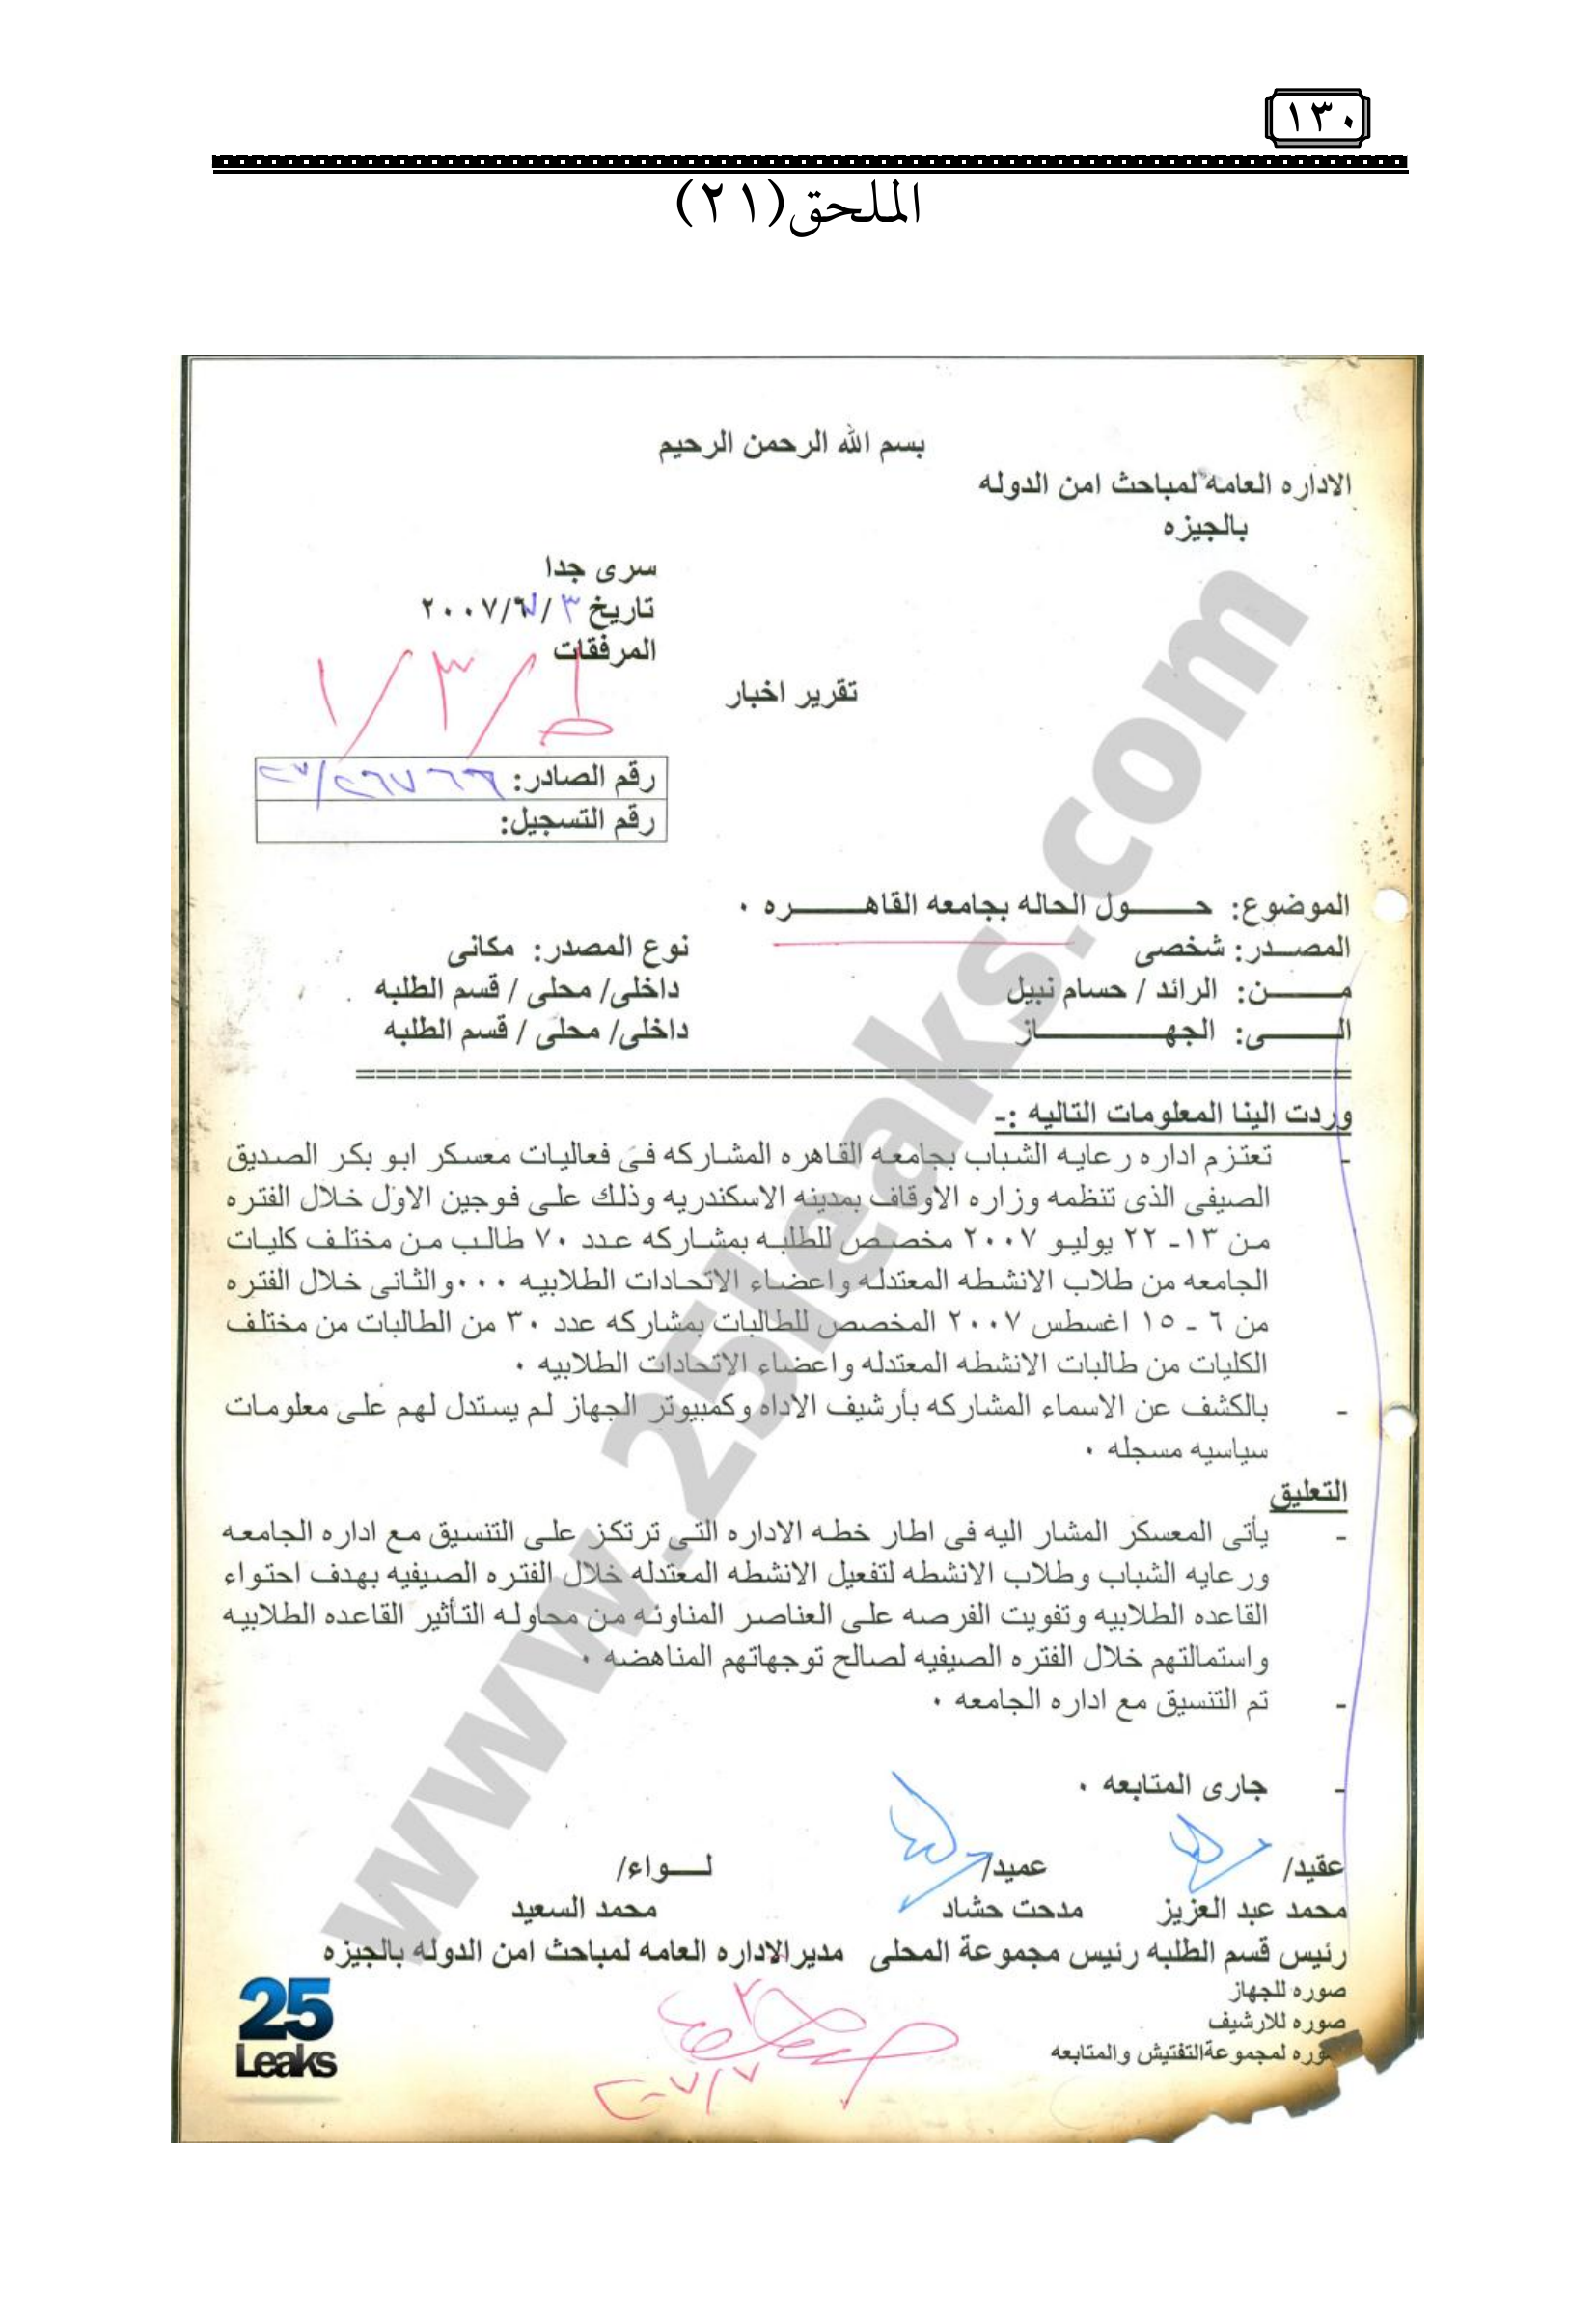 ١٣٠
الملحق(٢١)
بسم الله الرحمن الرحيم
الاداره العامه لمباحث امن الدوله
بالجيزه
سرى جدا
تاريخ ٣ / /٢٠٠٧
المرفقات
ط/٣/١
تقرير اخبار
رقم الصادر:
رقم التسجيل:
الموضوع: حـــــول الحاله بجامعه القاهـــــــره ٠
المصـــدر: شخصى
نوع المصدر: مكانى
مـــــــن: الرائد / حسام نبيل
داخلى/ محلى / قسم الطلبه
الـــــــى: الجهــــــــــــاز
داخلى/ محلى / قسم الطلبه
====================================================
وردت الينا المعلومات التاليه :-
- تعتزم اداره رعايه الشباب بجامعه القاهره المشاركه فى فعاليات معسكر ابو بكر الصديق
الصيفى الذى تنظمه وزاره الاوقاف بمدينه الاسكندريه وذلك على فوجين الاول خلال الفتره
من ١٣- ٢٢ يوليو ٢٠٠٧ مخصص للطلبه بمشاركه عدد ٧٠ طالب من مختلف كليات
الجامعه من طلاب الانشطه المعتدله واعضاء الاتحادات الطلابيه ٠٠٠والثانى خلال الفتره
من ٦ - ١٥ اغسطس ٢٠٠٧ المخصص للطالبات بمشاركه عدد ٣٠ من الطالبات من مختلف
الكليات من طالبات الانشطه المعتدله واعضاء الاتحادات الطلابيه ٠
- بالكشف عن الاسماء المشاركه بأرشيف الاداه وكمبيوتر الجهاز لم يستدل لهم على معلومات
سياسيه مسجله ٠
التعليق
- يأتى المعسكر المشار اليه فى اطار خطه الاداره التى ترتكز على التنسيق مع اداره الجامعه
ورعايه الشباب وطلاب الانشطه لتفعيل الانشطه المعتدله خلال الفتره الصيفيه بهدف احتواء
القاعده الطلابيه وتفويت الفرصه على العناصر المناوئه من محاوله التأثير القاعده الطلابيه
واستمالتهم خلال الفتره الصيفيه لصالح توجهاتهم المناهضه ٠
- تم التنسيق مع اداره الجامعه ٠
- جارى المتابعه ٠
عقيد/ عميد/ لـــــواء/
محمد عبد العزيز مدحت حشاد محمد السعيد
رئيس قسم الطلبه رئيس مجموعة المحلى مديرالاداره العامه لمباحث امن الدوله بالجيزه
صوره للجهاز
صوره للارشيف
صوره لمجموعةالتفتيش والمتابعه
25
Leaks
www.25leaks.com